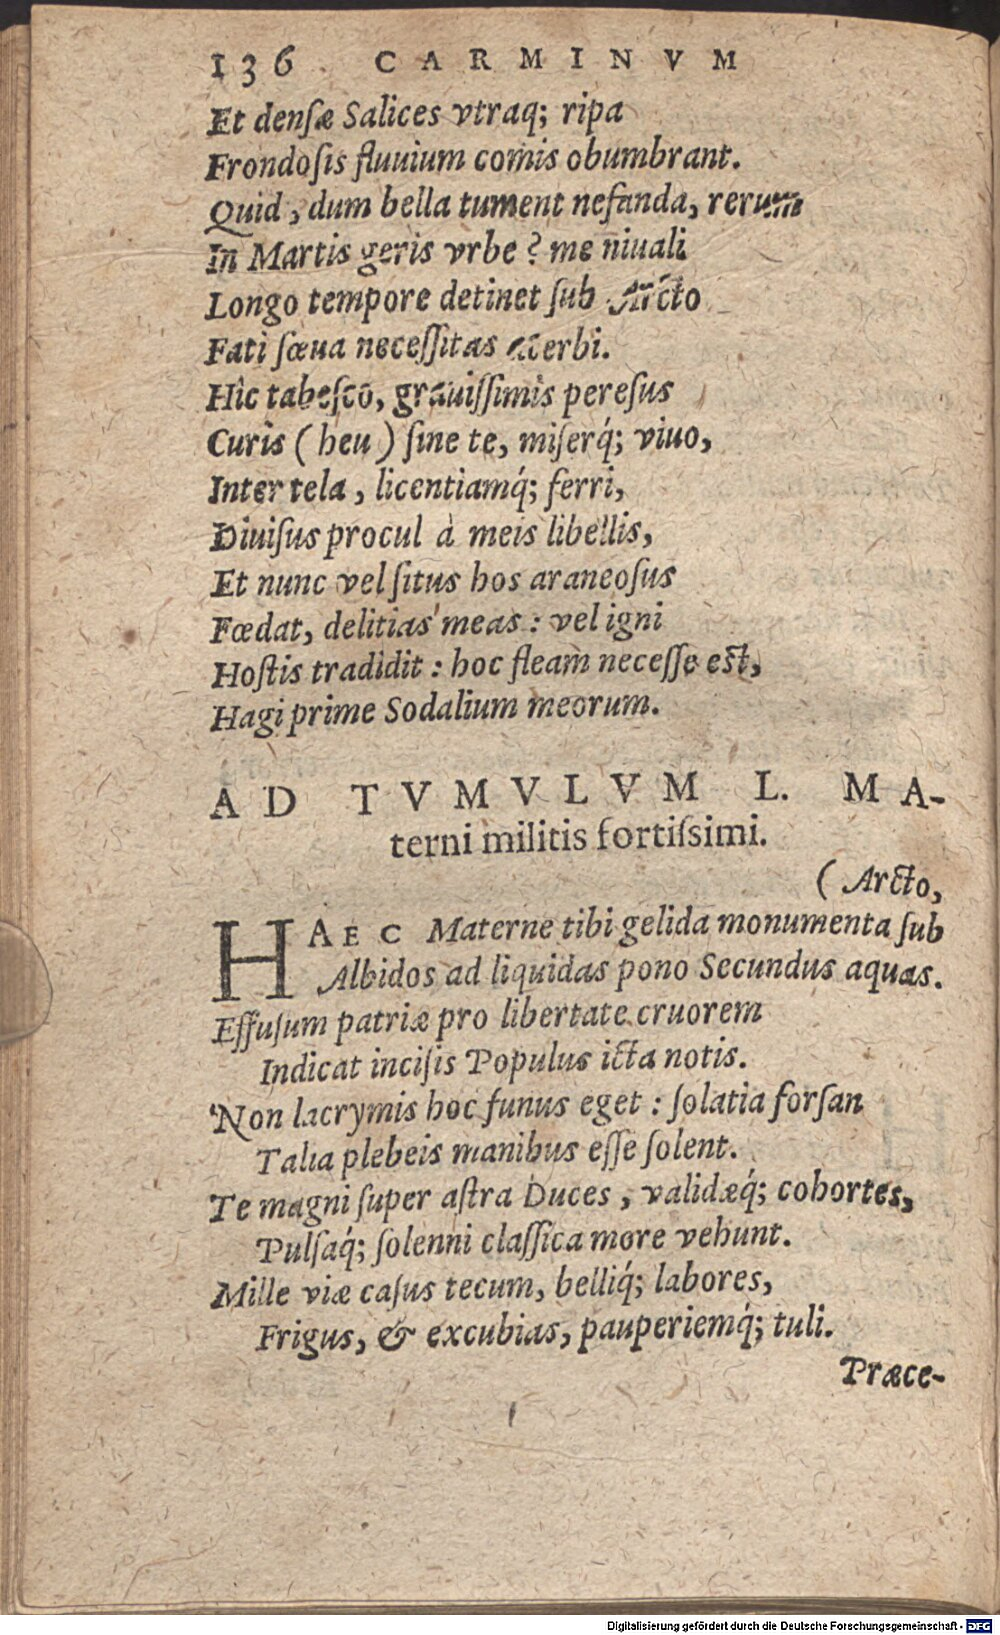 136 CARMINVM
Et densæ Salices vtraq; ripa
Frondoſis fluuium comis obumbrant.
Quid, dum bella tument nefanda, rerum
In Martis geris vrbe? me niuali
Longo tempore detinet ſub Arcto
Fati ſæua neceſſitas acerbi.
Hìc tabeſco, grauiſſimis pereſus
Curis (heu) ſine te, miſerq́; viuo,
Inter tela, licentiamq́; ferri,
Diuiſus procul à meis libellis,
Et nunc vel ſitus hos araneoſus
Fœdat, delitias meas: vel igni
Hoſtis tradidit: hoc fleam neceſſe eſt,
Hagi prime Sodalium meorum.
AD TVMVLVM L. MA-
terni militis fortiſsimi.
(Arcto,
HAEC Materne tibi gelida monumenta ſub
Albidos ad liquidas pono Secundus aquas.
Effuſum patriæ pro libertate cruorem
Indicat inciſis Populus icta notis.
Non lacrymis hoc funus eget: ſolatia forſan
Talia plebeis manibus eſſe ſolent.
Te magni ſuper aſtra Duces, validæq́; cohortes,
Pulſaq́; ſolenni claſſica more vehunt.
Mille viæ caſus tecum, belliq́; labores,
Frigus, & excubias, pauperiemq́; tuli.
Præce-
Digitalisierung gefördert durch die Deutsche Forschungsgemeinschaft - DFG